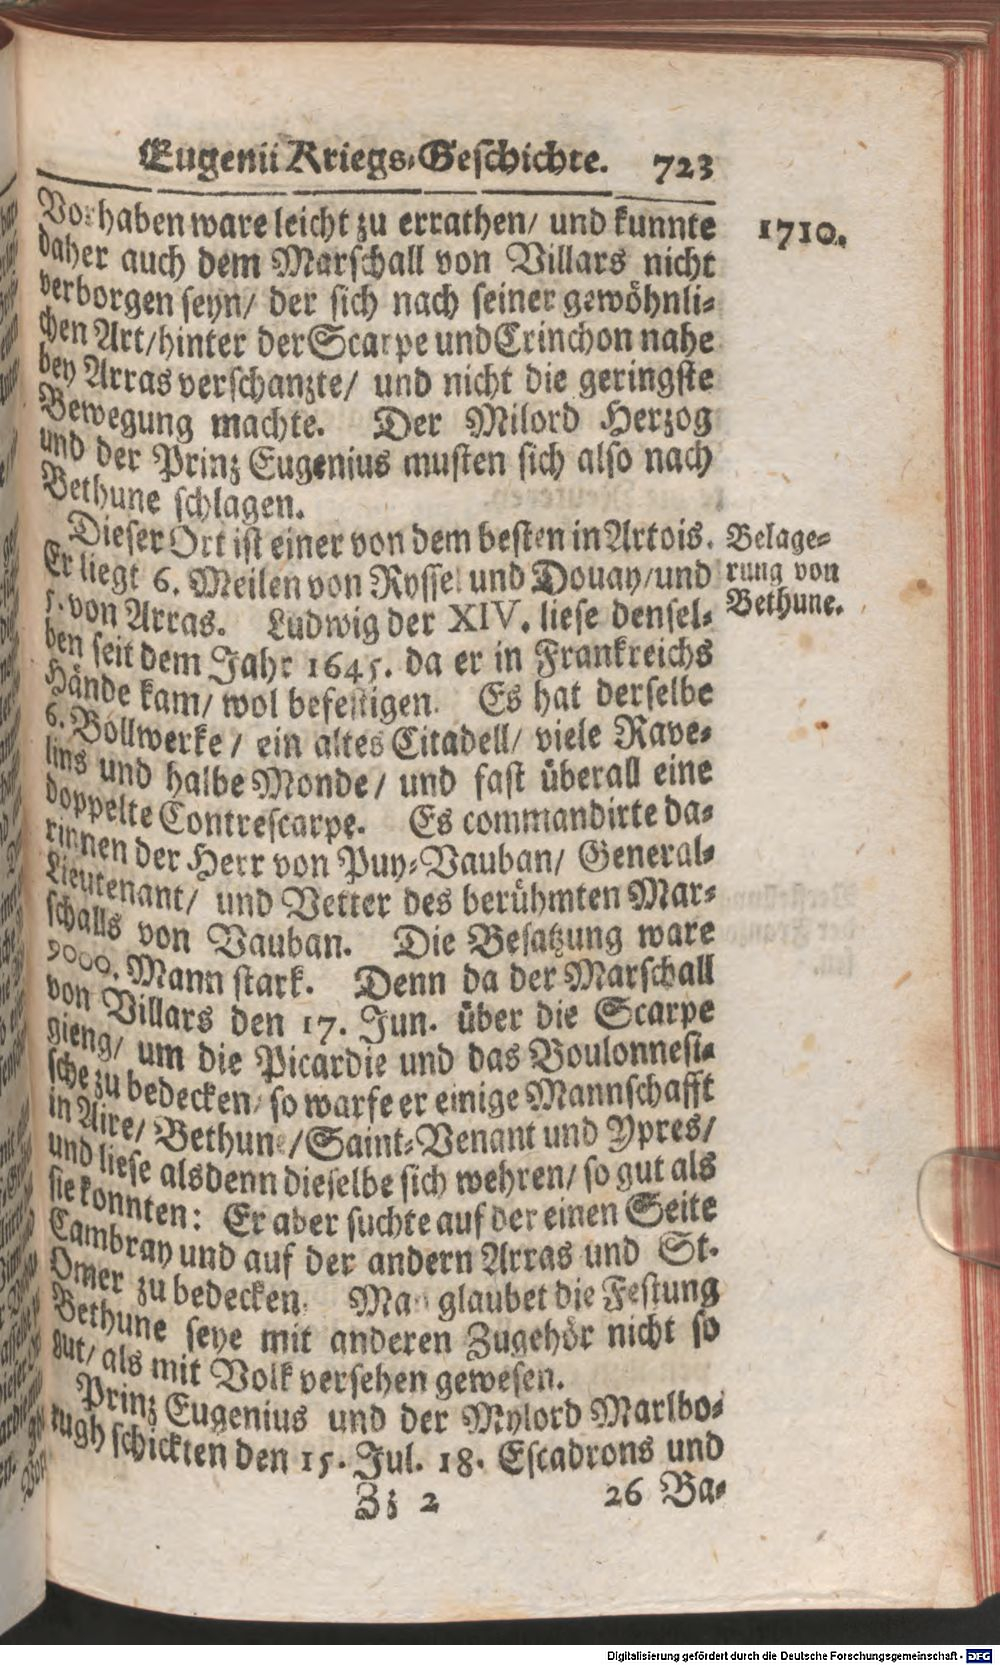 Eugenii Kriegs-Geschichte. 723
Vorhaben ware leicht zu errathen/ und kunnte
daher auch dem Marschall von Villars nicht
verborgen seyn/ der sich nach seiner gewöhnli-
chen Art/ hinter der Scarpe und Crinchon nahe
bey Arras verschanzte/ und nicht die geringste
Bewegung machte. Der Milord Herzog
und der Prinz Eugenius musten sich also nach
Bethune schlagen.
1710.
Dieser Ort ist einer von dem besten in Artois.
Er liegt 6. Meilen von Ryssel und Douay/ und
5. von Arras. Ludwig der XIV. liese densel-
ben seit dem Jahr 1645. da er in Frankreichs
Hände kam/ wol befestigen. Es hat derselbe
6. Bollwerke/ ein altes Citadell/ viele Rave-
lins und halbe Monde/ und fast überall eine
doppelte Contrescarpe. Es commandirte da-
rinnen der Herr von Puy-Vauban/ General-
Lieutenant/ und Vetter des berühmten Mar-
schalls von Vauban. Die Besatzung ware
9000. Mann stark. Denn da der Marschall
von Villars den 17. Jun. über die Scarpe
gieng/ um die Picardie und das Boulonnesi-
sche zu bedecken/ so warfe er einige Mannschafft
in Aire/ Bethune/ Saint-Venant und Ypres/
und liese alsdenn dieselbe sich wehren/ so gut als
sie konnten: Er aber suchte auf der einen Seite
Cambray und auf der andern Arras und St.
Omer zu bedecken. Man glaubet die Festung
Bethune seye mit anderen Zugehör nicht so
gut/ als mit Volk versehen gewesen.
Belage-
rung von
Bethune.
Prinz Eugenius und der Mylord Marlbo-
rugh schickten den 15. Jul. 18. Escadrons und
Zz 2 26 Ba-
Digitalisierung gefördert durch die Deutsche Forschungsgemeinschaft - DFG